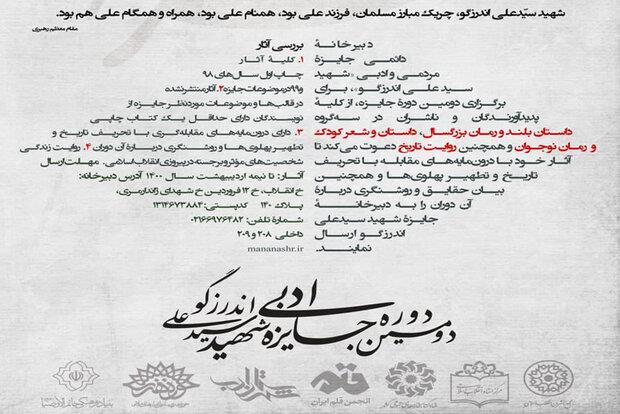 شهید سیّدعلی اندرزگو، چریک مبارز مسلمان، فرزند علی بود، همنام علی بود، همراه و همگام علی هم بود.
مقام معظم رهبری
دبیرخانهٔ
دائمی جایزهٔ
مردمی و ادبی «شهید
سید علی اندرزگو»، برای
برگزاری دومین دورهٔ جایزه، از کلیهٔ
پدیدآورندگان و ناشران در سه‌گروه
داستان بلند و رمان بزرگسال، داستان و شعر کودک
و رمان نوجوان و همچنین روایت تاریخ دعوت می‌کند تا
آثار خود با درون‌مایه‌های مقابله با تحریف
تاریخ و تطهیر پهلوی‌ها و همچنین
بیان حقایق و روشنگری دربارهٔ
آن دوران را به دبیرخانهٔ
جایزهٔ شهید سیدعلی
اندرزگو ارسال
نمایند.
بررسی آثار
۱. کلیهٔ آثار
چاپ اول سال‌های ۹۸
و۹۹ درموضوعات‌جایزه ۲. آثارمنتشرنشده
در قالب‌ها و موضوعات موردنظر جایزه از
نویسندگان دارای حداقل یک کتاب چاپی
۳. دارای درون‌مایه‌های مقابله‌گری با تحریف تاریخ و
تطهیر پهلوی‌ها و روشنگری دربارهٔ آن دوران ۴. روایت زندگی
شخصیت‌های مؤثر و برجسته در پیروزی انقلاب اسلامی. مهلت ارسال
آثار: تا نیمه اردیبهشت سال ۱۴۰۰ آدرس دبیرخانه:
خ انقلاب، خ ۱۲ فروردین خ شهدای ژاندارمری،
پلاک ۱۴۰ کدپستی: ۱۳۱۴۶۷۳۸۸۴
شمارهٔ تلفن: ۰۲۱۶۶۹۷۶۴۸۲
داخلی ۲۰۸ و ۲۰۹
mananashr.ir
دومین دوره جایزه ادبی شهید سید علی اندرزگو
انجمن قلم ایران